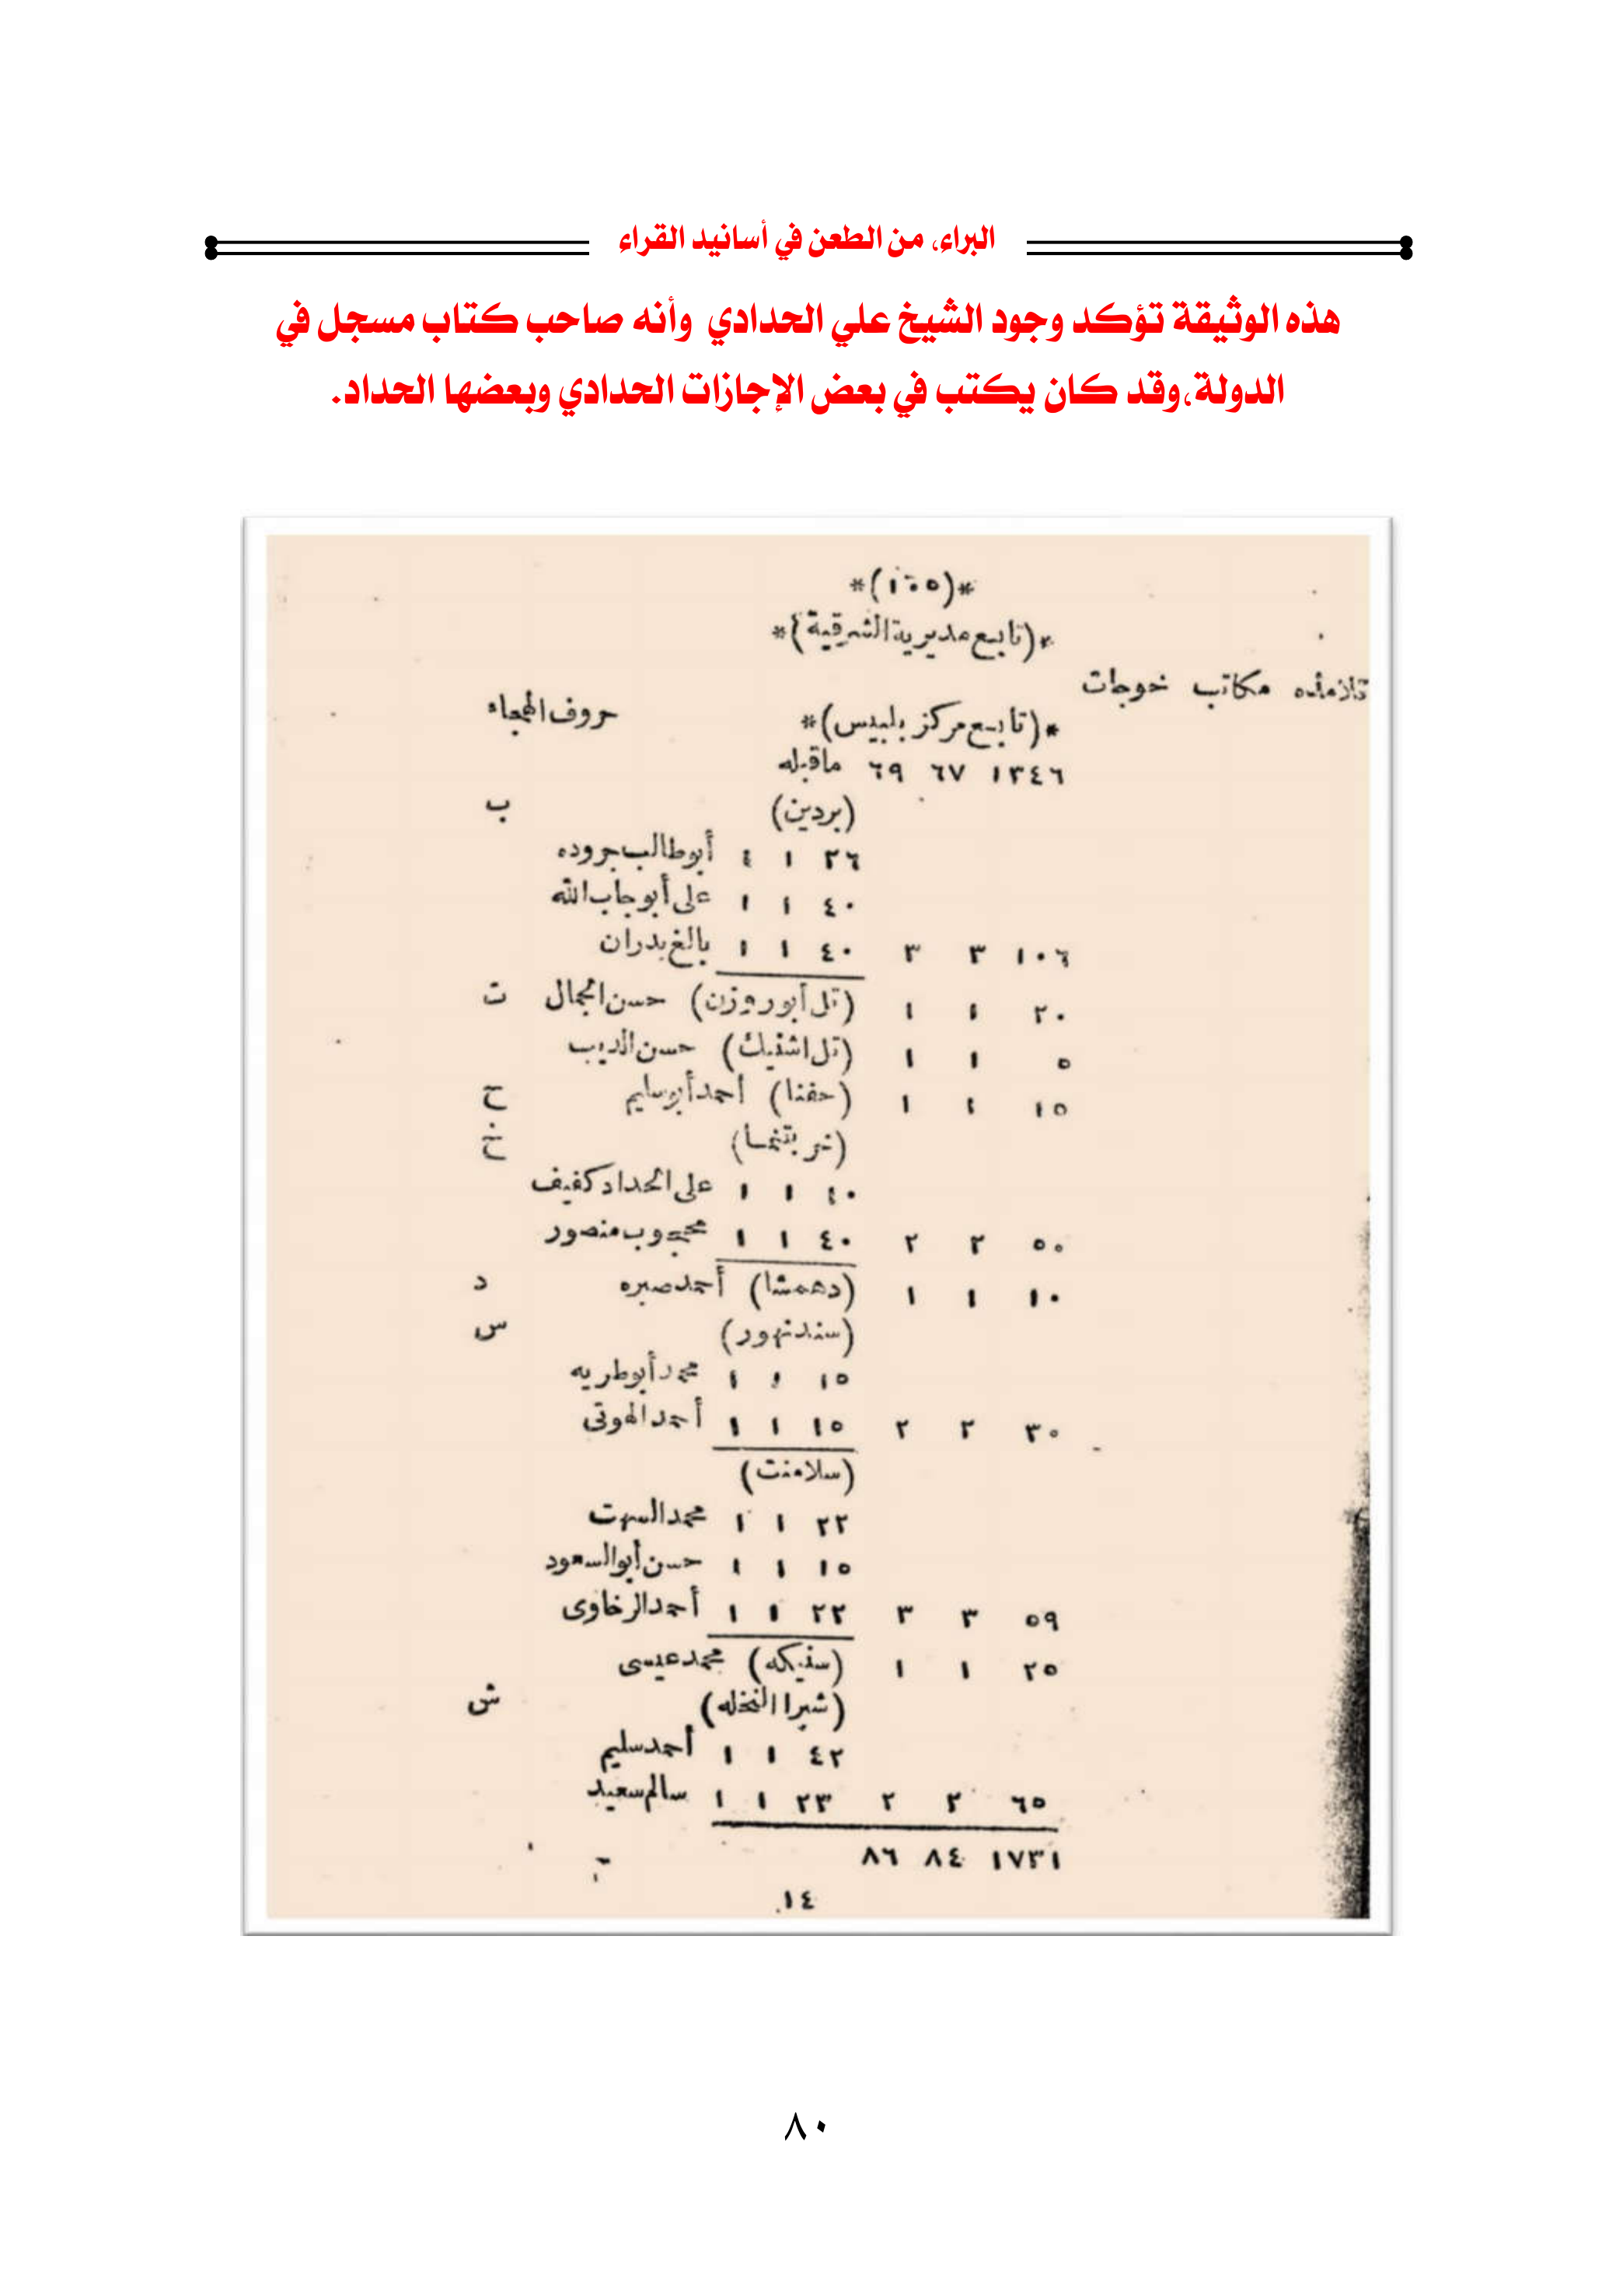 البراء، من الطعن في أسانيد القراء
هذه الوثيقة تؤكد وجود الشيخ علي الحدادي وأنه صاحب كتاب مسجل في
الدولة،وقد كان يكتب في بعض الإجازات الحدادي وبعضها الحداد.
*(١٠٥)*
*(تابع مديرية الشرقية)*
تلامذه مكاتب خوجات
*(تابع مركز بلبيس)* حروف الهجاء
١٣٤٦ ٦٧ ٦٩ ماقبله
(بردين) ب
٢٦ ١ ٤ أبوطالب جروده
٤٠ ١ ١ على أبو جاب الله
١٠٦ ٣ ٣ ٤٠ ١ ١ بالغ بدران
٢٠ ١ ١ (تل أبوروزن) حسن الجمال ت
٥ ١ ١ (تل اشنيك) حسن الديب
١٥ ١ ١ (حفنا) أحمد أبوسليم ح
(خربتنما) خ
١٠ ١ ١ على الحداد كفيف
٥٠ ٢ ٢ ٤٠ ١ ١ محجوب منصور
١٠ ١ ١ (دهمشا) أحمد صبره د
(سندنهور) س
١٥ ١ ١ محمد أبوطريه
٣٠ ٢ ٢ ١٥ ١ ١ أحمد الهوتى
(سلامنت)
٢٢ ١ ١ محمد
١٥ ١ ١ حسن أبوالسعود
٥٩ ٣ ٣ ٢٢ ١ ١ أحمد الرخاوى
٢٥ ١ ١ (سنيكه) محمد عيسى
(شبرا النخله) ش
٤٢ ١ ١ أحمد سليم
٦٥ ٢ ٢ ٢٣ ١ ١ سالم سعيد
١٧٣١ ٨٤ ٨٦
١٤
٨٠